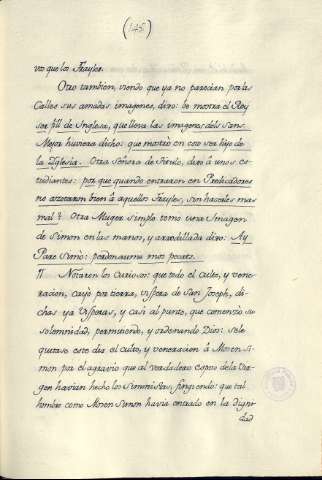 (145)
vo que los Frayles.
Otro tambien, viendo que ya no parecian por las
Calles sus amadas imagenes, dixo: be mostra el Rey
ser fill de Inglesa, que lleva las imagens dels Sans.
Mejor huviera dicho: que mostró en esto ser hijo de
la Iglesia. Otra Señora de Titulo, dixo à unos es-
tudiantes: por que quando entraron en Predicadores
no azotaron bien à aquellos Frayles, sin hacerles mas
mal? Otra Muger simple tomo una Imagen
de Simon en las manos, y arrodillada dixo: Ay
Pare Simó: perdonaume mos pecats.
¶ Notaron los curiosos: que todo el culto, y vene-
racion, cayó por tierra, vispera de San Joseph, di-
chas ya Visperas, y casi al punto, que comenzo su
solemnidad, permitiendo, y ordenando Dios: se le
quitase este dia el culto, y veneracion à Mosen Si-
mon por el agravio que al verdadero esposo de la Vir-
gen havian hecho los Simonistas, fingiendo: que tal
hombre como Mosen Simon havia entrado en la digni-
dad